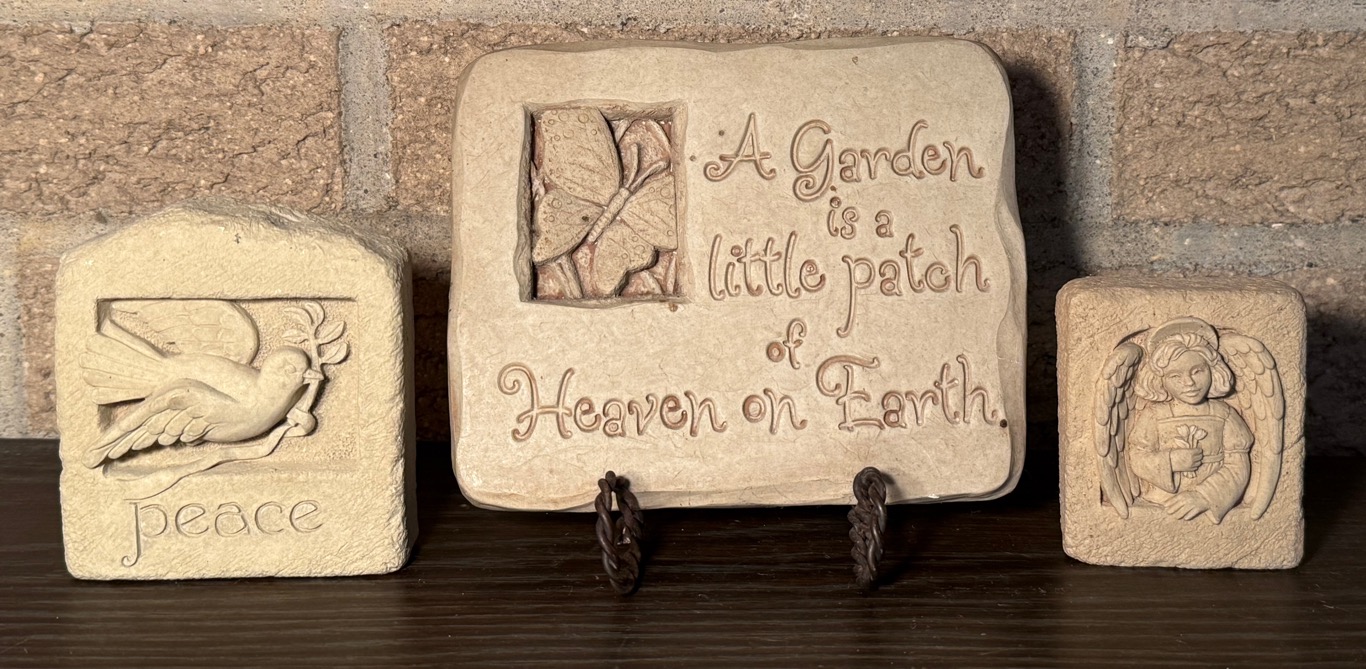 peace
A Garden
is a
little patch
of
Heaven on Earth.